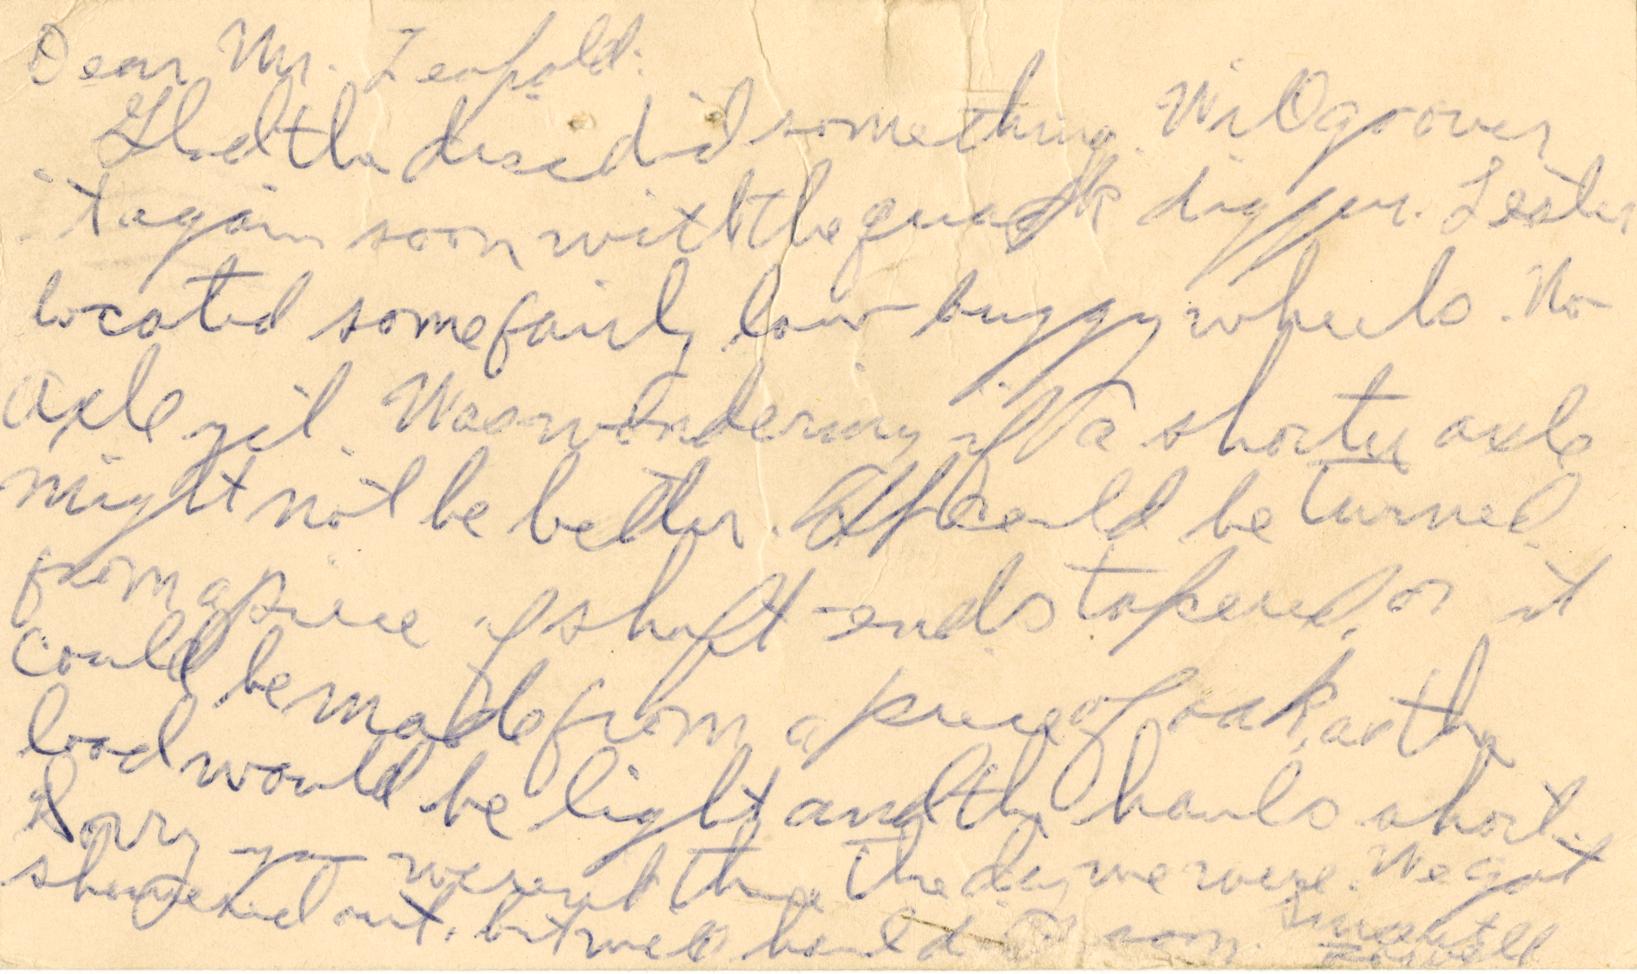 Dear Mr. Leopold:
Glad the disc did something. Will go over
it again soon with the quack digger. Lester
located some fairly low buggy wheels. No
axle yet. Was wondering if a shorty axle
might not be better. It could be turned
from a piece of shaft - ends tapered, or it
could be made from a piece of oak, as the
load would be light and the hauls short.
Sorry you weren't there the day we were. We got
out, but we'll build soon.